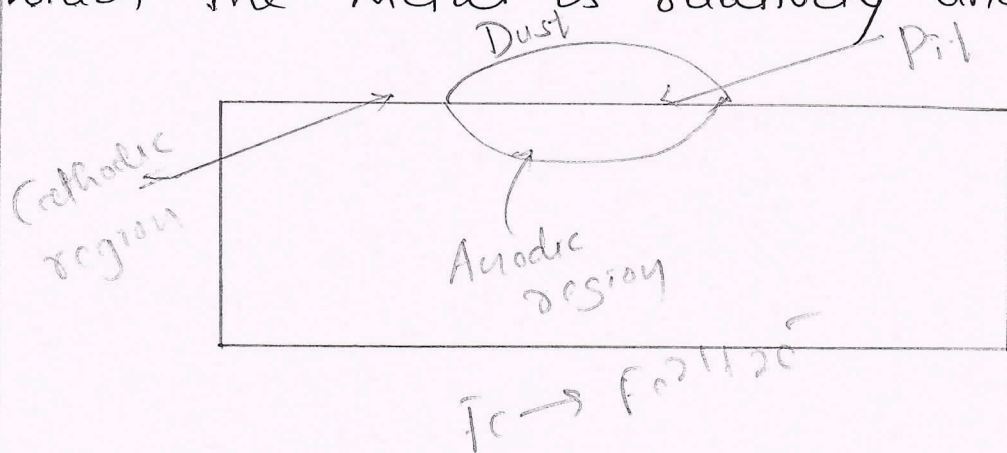 the metal is relatively
Dust
Pit
Cathodic
region
Anodic
region
Fe → Fe²⁺+2e⁻